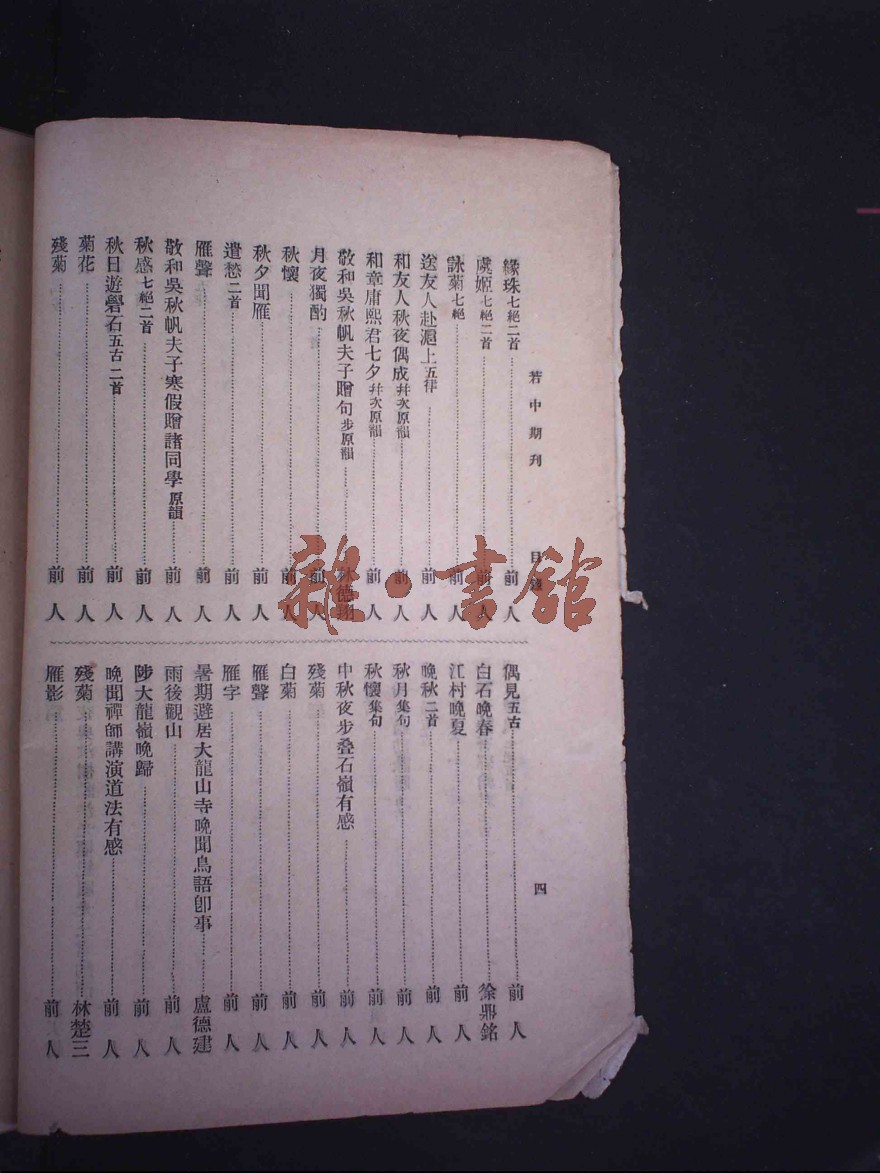 若中期刊 目錄 四
緣珠七絕二首 前人
虞姬七絕二首 前人
詠菊七絕 前人
送友人赴滬上五律 前人
和友人秋夜偶成幷次原韻 前人
和章庸熙君七夕幷次原韻 前人
敬和吳秋帆夫子贈句步原韻 德翊
月夜獨酌 前人
秋懷 前人
秋夕聞雁 前人
遣愁二首 前人
雁聲 前人
敬和吳秋帆夫子寒假贈諸同學原韻 前人
秋感七絕二首 前人
秋日遊礐石五古二首 前人
菊花 前人
殘菊 前人
偶見五古 前人
白石晚春 徐鼎銘
江村晚夏 前人
晚秋二首 前人
秋月集句 前人
秋懷集句 前人
中秋夜步叠石嶺有感 前人
殘菊 前人
白菊 前人
雁聲 前人
雁字 前人
暑期避居大龍山寺晚聞鳥語卽事 盧德建
雨後觀山 前人
陟大龍嶺晚歸 前人
晚聞禪師講演道法有感 前人
殘菊 林楚三
雁影 前人
雜·書館